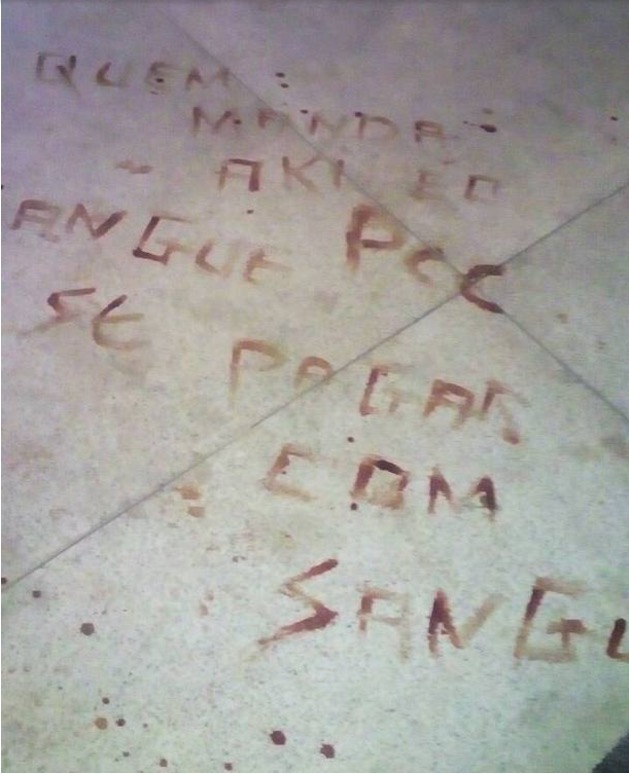 QUEM
MANDA
AKI E O
ANGUE PCC
SE PAGAR
COM
SANGU